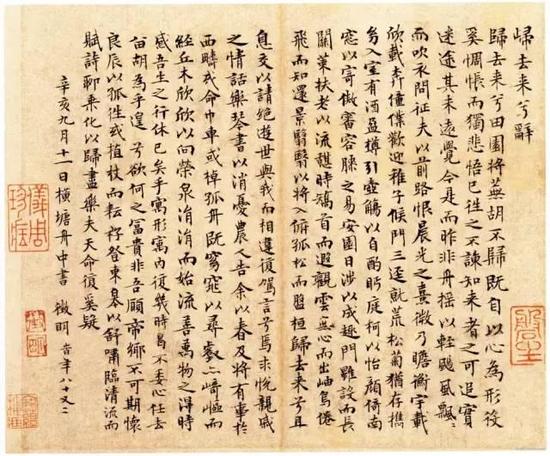 歸去來兮辭
歸去來兮田園將蕪胡不歸既自以心為形役
奚惆悵而獨悲悟已往之不諫知来者之可追實
迷途其未遠覺今是而昨非舟搖以輕颺風飄飄
而吹衣問征夫以前路恨晨光之熹微乃瞻衡宇載
欣載奔僮僕歡迎稚子候門三逕就荒松菊猶存攜
幼入室有酒盈樽引壺觴以自酌眄庭柯以怡顏倚南
窓以寄傲審容膝之易安園日涉以成趣門雖設而長
關策扶老以流憩時矯首而遐觀雲無心而出岫鳥倦
飛而知還景翳翳以將入撫孤松而盤桓歸去来兮且
息交以請絕遊世與我而相違復駕言兮焉求悅親戚
之情話樂琴書以消憂農人告余以春及將有事於
西疇或命巾車或棹孤舟既窈窕以尋壑亦崎嶇而
經丘木欣欣以向榮泉涓涓而始流善萬物之得時
感吾生之行休已矣乎寓形寓內復幾時曷不委心任去
留胡為乎遑遑兮欲何之富貴非吾願帝鄉不可期懷
良辰以孤往或植杖而耘耔登東皋以舒嘯臨清流而
賦詩聊乘化以歸盡樂夫天命復奚疑
辛亥九月十一日橫塘舟中書 徵明 時年八十又二